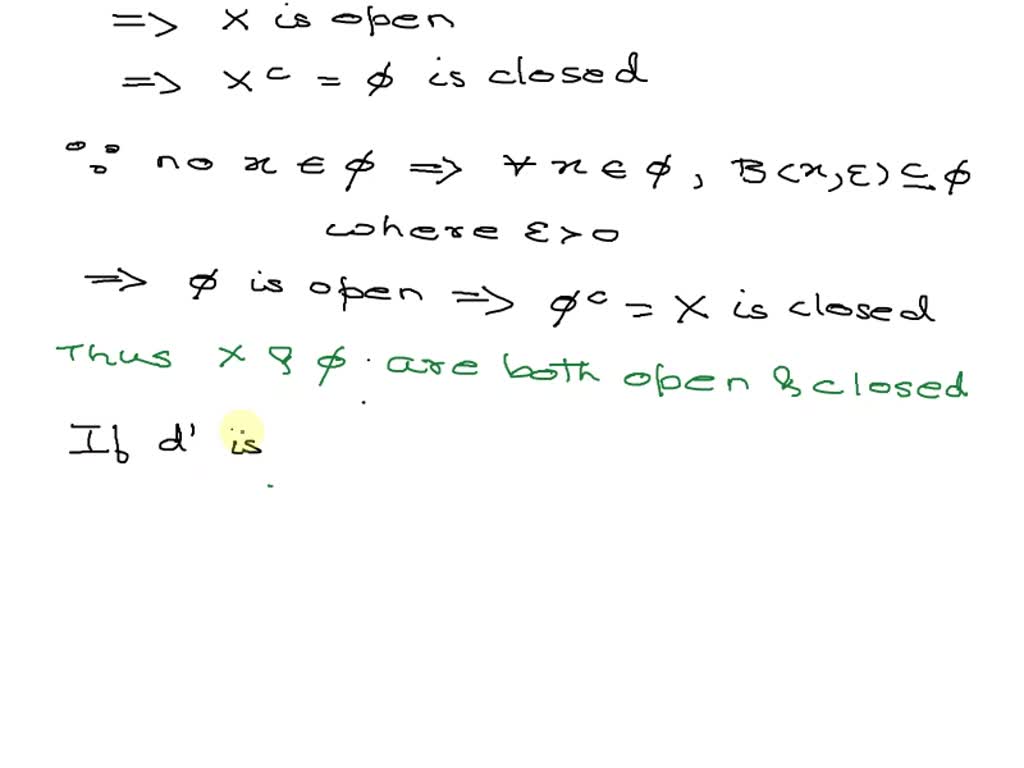 => X is open
=> Xᶜ = ϕ is closed
∵ no x ∈ ϕ => ∀ x ∈ ϕ, B(x,ε) ⊆ ϕ
where ε>0
=> ϕ is open => ϕᶜ = X is closed
Thus X & ϕ are both open & closed
If d' is